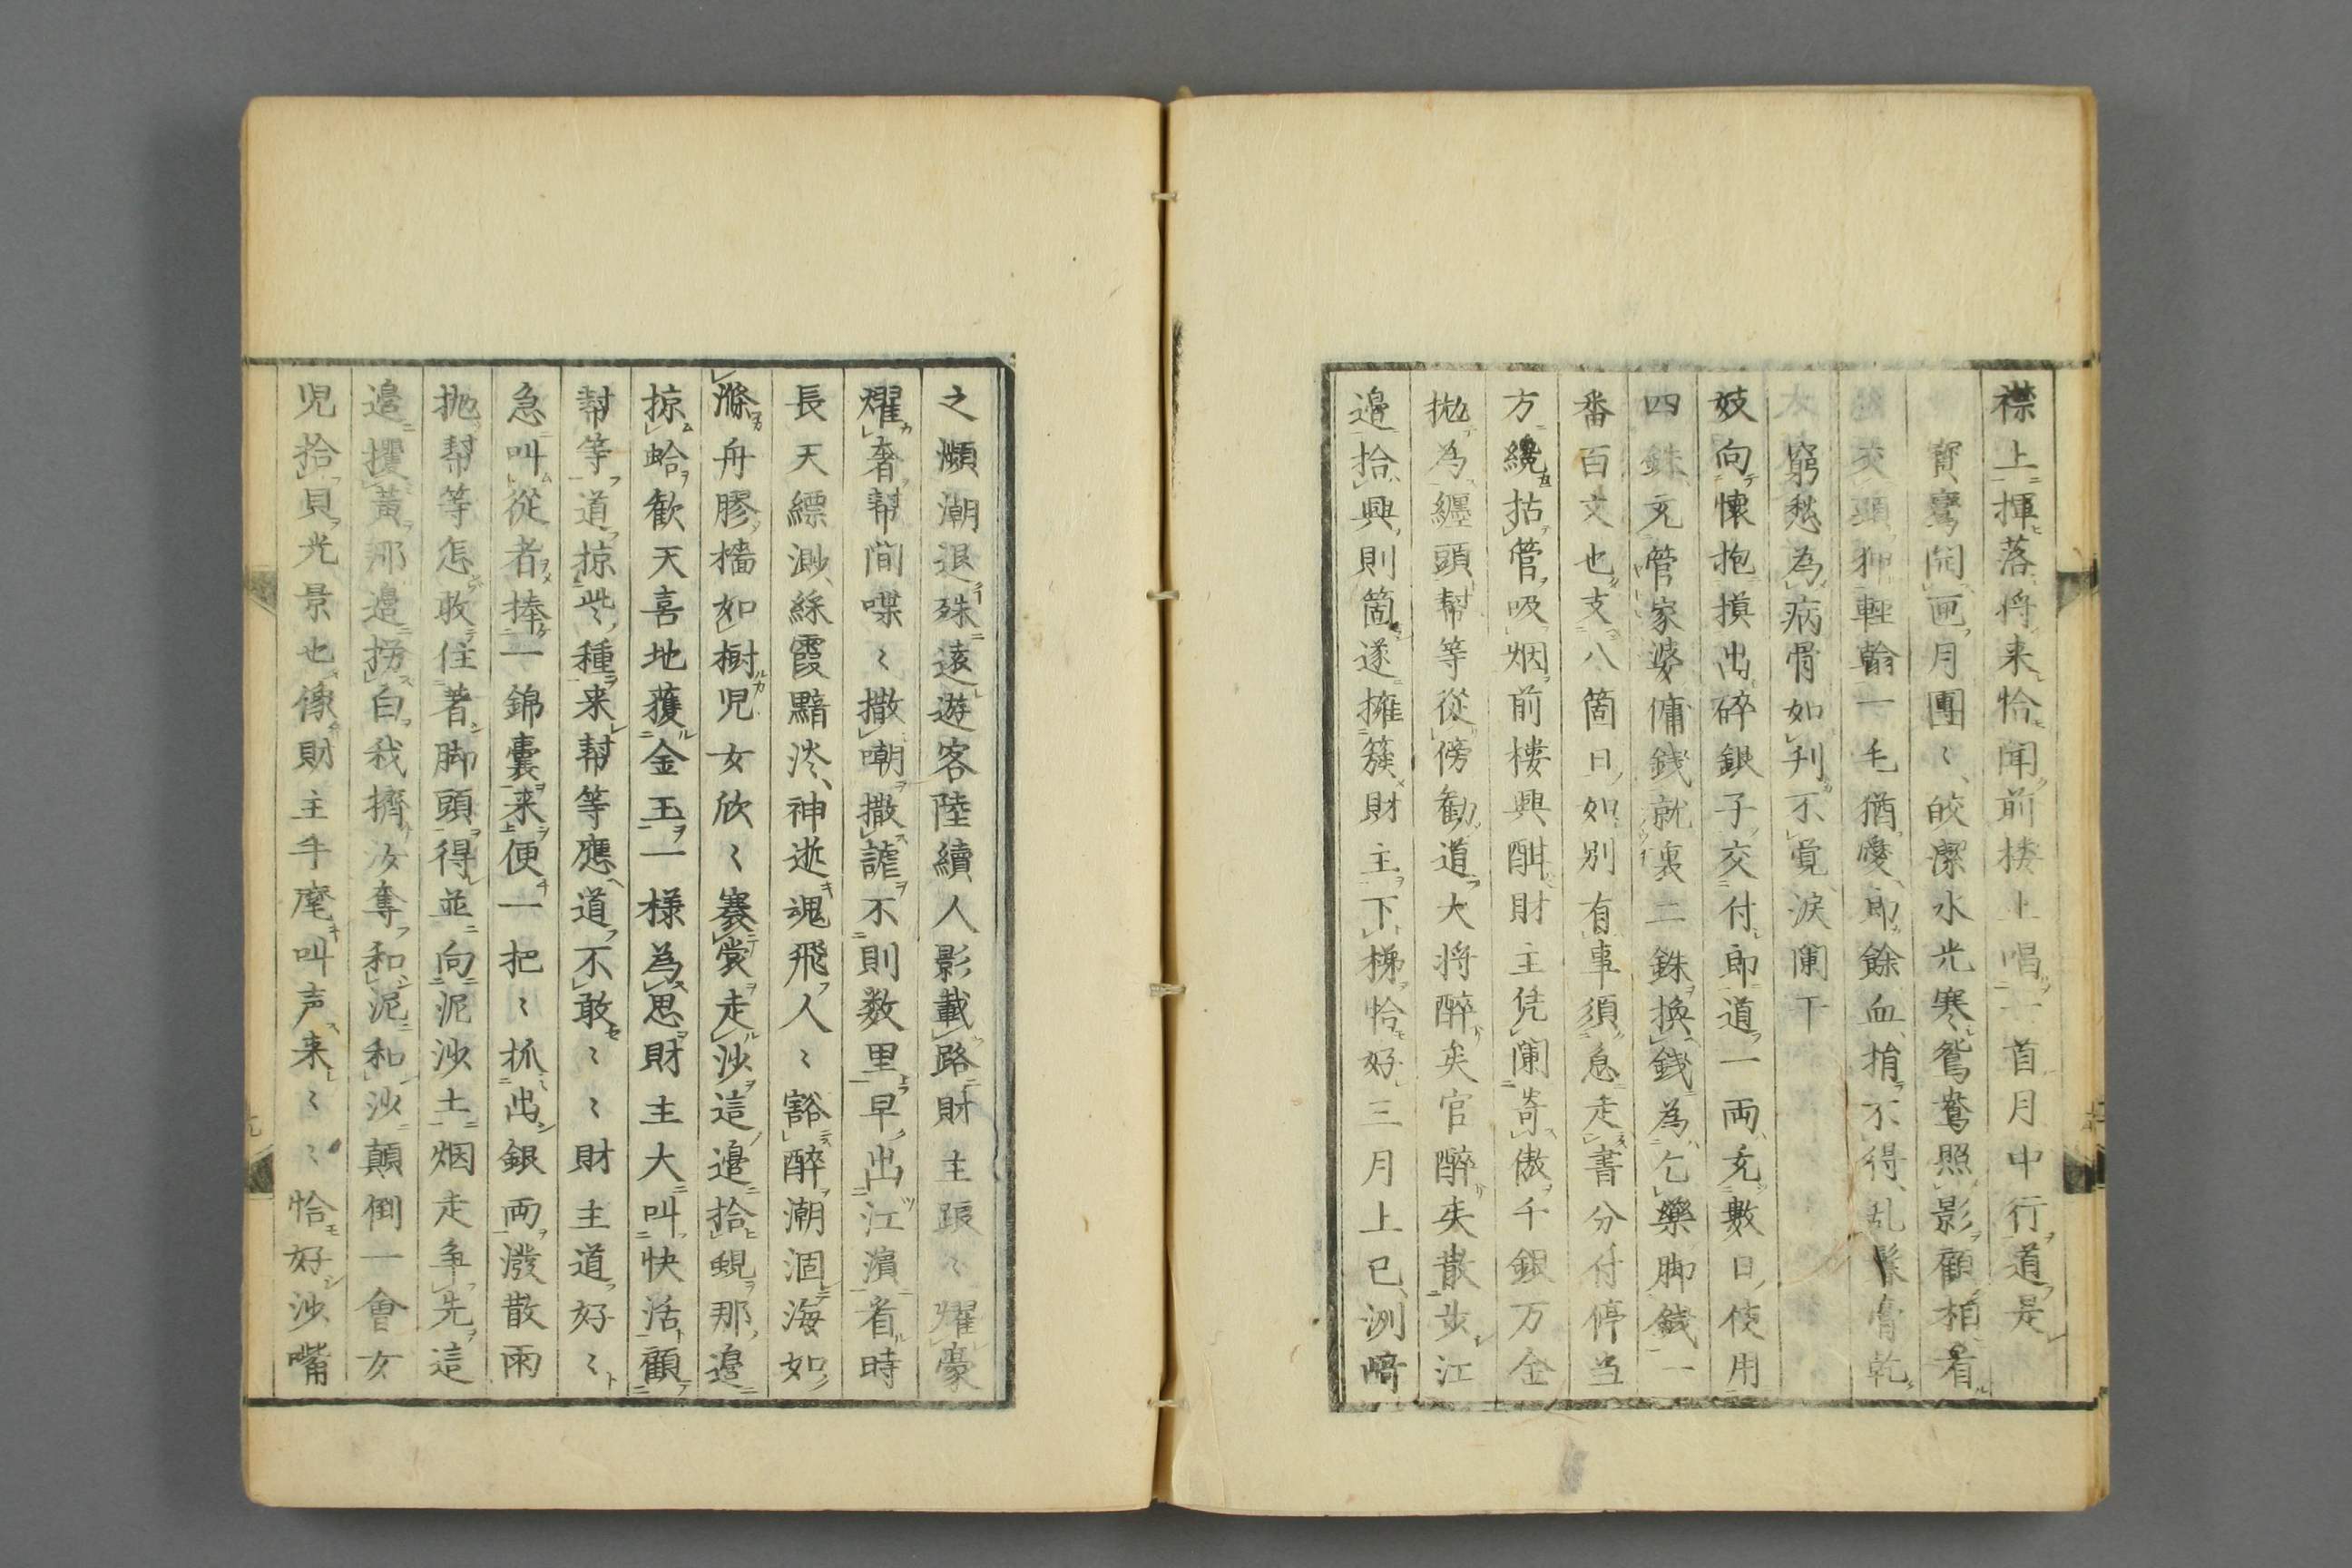 襟上揮落将来恰聞前楼上唱一首月中行道是
寳奩開匣月團〻皎潔水光寒鴛鴦照影顧相看
交頭狎輕翰一毛猶愛郎餘血捐不得乱鬆膏乾
窮愁為病骨如刋不覚涙闌干
妓向懐抱摸出碎銀子交付郎道一両充數日使用
四銖充管家婆傭銭就裏二銖換銭為乞藥脚銭一
番百文也支八箇日如別有事須急走書分付停当
方纔拈管吸烟前楼興酣財主凭闌寄傲千銀万金
抛為纏頭幇等從傍勧道大将醉矣官醉矣散歩江
邉拾興則箇遂擁簇財主下梯恰好三月上巳洲﨑
之瀬潮退殊遠遊客陸續人影載路財主踉〻燿豪
燿奢幇間喋〻撒嘲撒謔不則数里早出江濱看時
長天縹渺綵霞黯淡神逝魂飛人〻豁醉潮涸海如
滌舟膠檣如樹児女欣〻褰裳走沙這邉拾蜆那邉
掠蛤歓天喜地獲金玉一様為思財主大叫快活顧
幇等道掠些種来幇等應道不敢〻〻財主道好〻
急叫從者捧一錦嚢来便一把〻抓出銀両潑散雨
抛幇等怎敢住著脚頭得並向泥沙土烟走争先這
邉攫黄那邉拐白我擠汝奪和泥和沙顛倒一會女
児拾貝光景也像財主手麾叫声来〻〻恰好沙嘴